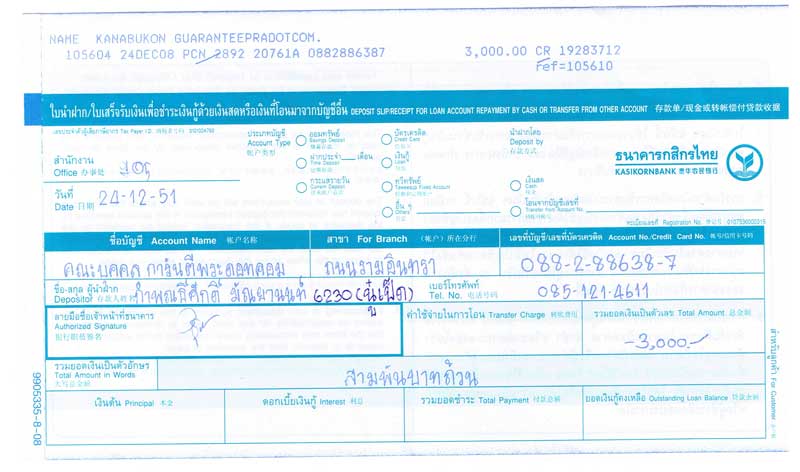 NAME KANABUKON GUARANTEEPRADOTCOM.
105604 24DEC08 PCN 2892 20761A 0882886387 3,000.00 CR 19283712
Ref=105610
ใบนำฝาก/ใบเสร็จรับเงินเพื่อชำระเงินกู้ด้วยเงินสดหรือเงินที่โอนมาจากบัญชีอื่น DEPOSIT SLIP/RECEIPT FOR LOAN ACCOUNT REPAYMENT BY CASH OR TRANSFER FROM OTHER ACCOUNT 存款单/现金或转帐偿付贷款收据
เลขประจำตัวผู้เสียภาษีอากร Tax Payer I.D.
ประเภทบัญชี Account Type 帐户类型
ออมทรัพย์ Savings Deposit
บัตรเครดิต Credit Card
นำฝากโดย Deposit by 存款方式
ฝากประจำ___เดือน Time Deposit
เงินกู้ Loan
กระแสรายวัน Current Deposit
ทวีทรัพย์ Taweesup Fixed Account
เงินสด Cash
อื่น ๆ Others
โอนจากบัญชีเลขที่ Transfer from Account No.
ธนาคารกสิกรไทย
KASIKORNBANK 泰华农民银行
สำนักงาน Office 办事处
วันที่ Date 日期 24-12-51
ทะเบียนเลขที่ Registration No. 登记号 0107536000315
ชื่อบัญชี Account Name 帐户名称 สาขา For Branch (帐户) 所在分行 เลขที่บัญชี/เลขที่บัตรเครดิต Account No./Credit Card No. 帐号/信用卡号码
คณะบุคคล การันตีพระดอทคอม ถนนรามอินทรา 088-2-88638-7
ชื่อ-สกุล ผู้นำฝาก Depositor 存款人姓名 6230 เบอร์โทรศัพท์ Tel. No. 电话号码 085-121-4611
ลายมือชื่อเจ้าหน้าที่ธนาคาร Authorized Signature 银行职员签名
ค่าใช้จ่ายในการโอน Transfer Charge 转帐费用 รวมยอดเงินเป็นตัวเลข Total Amount 总金额
-3,000.-
รวมยอดเงินเป็นตัวอักษร Total Amount in Words 大写总金额 สามพันบาทถ้วน
เงินต้น Principal 本金 ดอกเบี้ยเงินกู้ Interest 利息 รวมยอดชำระ Total Payment 付款总额 ยอดเงินกู้คงเหลือ Outstanding Loan Balance 贷款余额
9905335-8-08
สำหรับลูกค้า For Customer